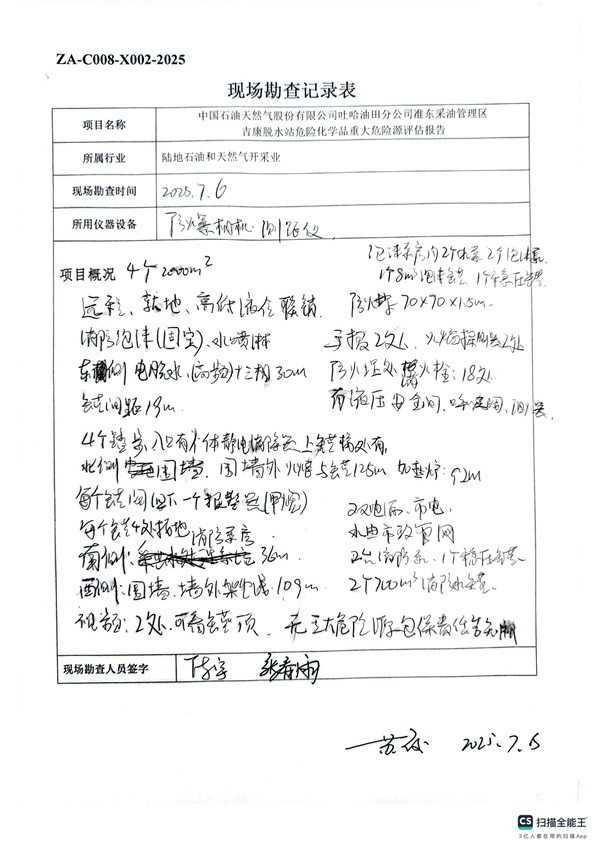 ZA-C008-X002-2025
现场勘查记录表
项目名称
中国石油天然气股份有限公司吐哈油田分公司准东采油管理区
吉康脱水站危险化学品重大危险源评估报告
所属行业
陆地石油和天然气开采业
现场勘查时间
2025.7.6
所用仪器设备
防爆相机 测距仪
项目概况 4个2000m²
泡沫泵房内2个水泵 2个泡沫泵
1个8m³泡沫罐 1个稳压罐
远传、就地、高低液位联锁
防火堤70×70×1.5m
消防泡沫(固定)、水喷淋
手报2处、火焰探测器2处
东侧 电脱水(高频)十三相30m
防火堤处 消火栓:18处
罐间距19m
有液压安全阀、呼吸阀、阻火器
4个踏步入口有人体静电消除器上罐梯处有
北侧 围墙、围墙外 与罐125m 加热炉:92m
每个罐阀组下一个报警器(甲烷)
双电源、市电
每个罐4处接地
水由市政管网
消防泵房
南侧: 36m
2台消防泵、1个稳压罐
西侧:围墙、墙外架空线:109m
2个700m³消防水罐
视频:2处、可看罐顶
无重大危险源包保责任告知牌
现场勘查人员签字
陈宇 张春雨
2025.7.6
CS 扫描全能王
3亿人都在用的扫描App